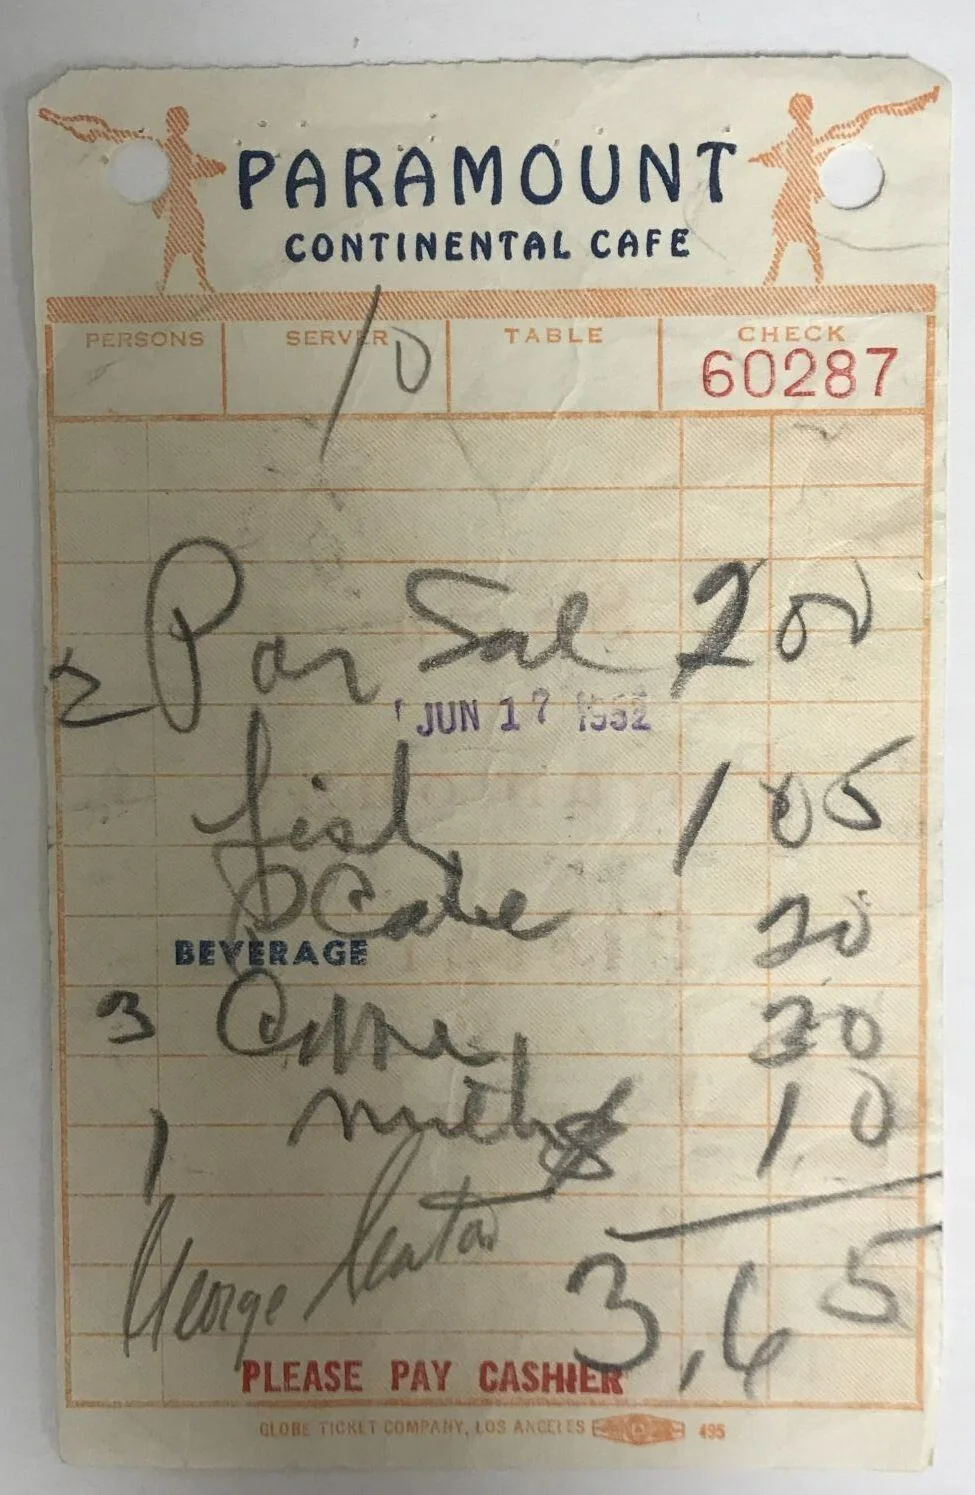 PARAMOUNT
CONTINENTAL CAFE
PERSONS SERVER TABLE CHECK
10 60287
2 Par Sal 2 00
JUN 17 1952
fish 1 05
Cake 20
BEVERAGE
3 Coffee 30
1 milk 10
George Seaton 3,65
PLEASE PAY CASHIER
GLOBE TICKET COMPANY, LOS ANGELES 495